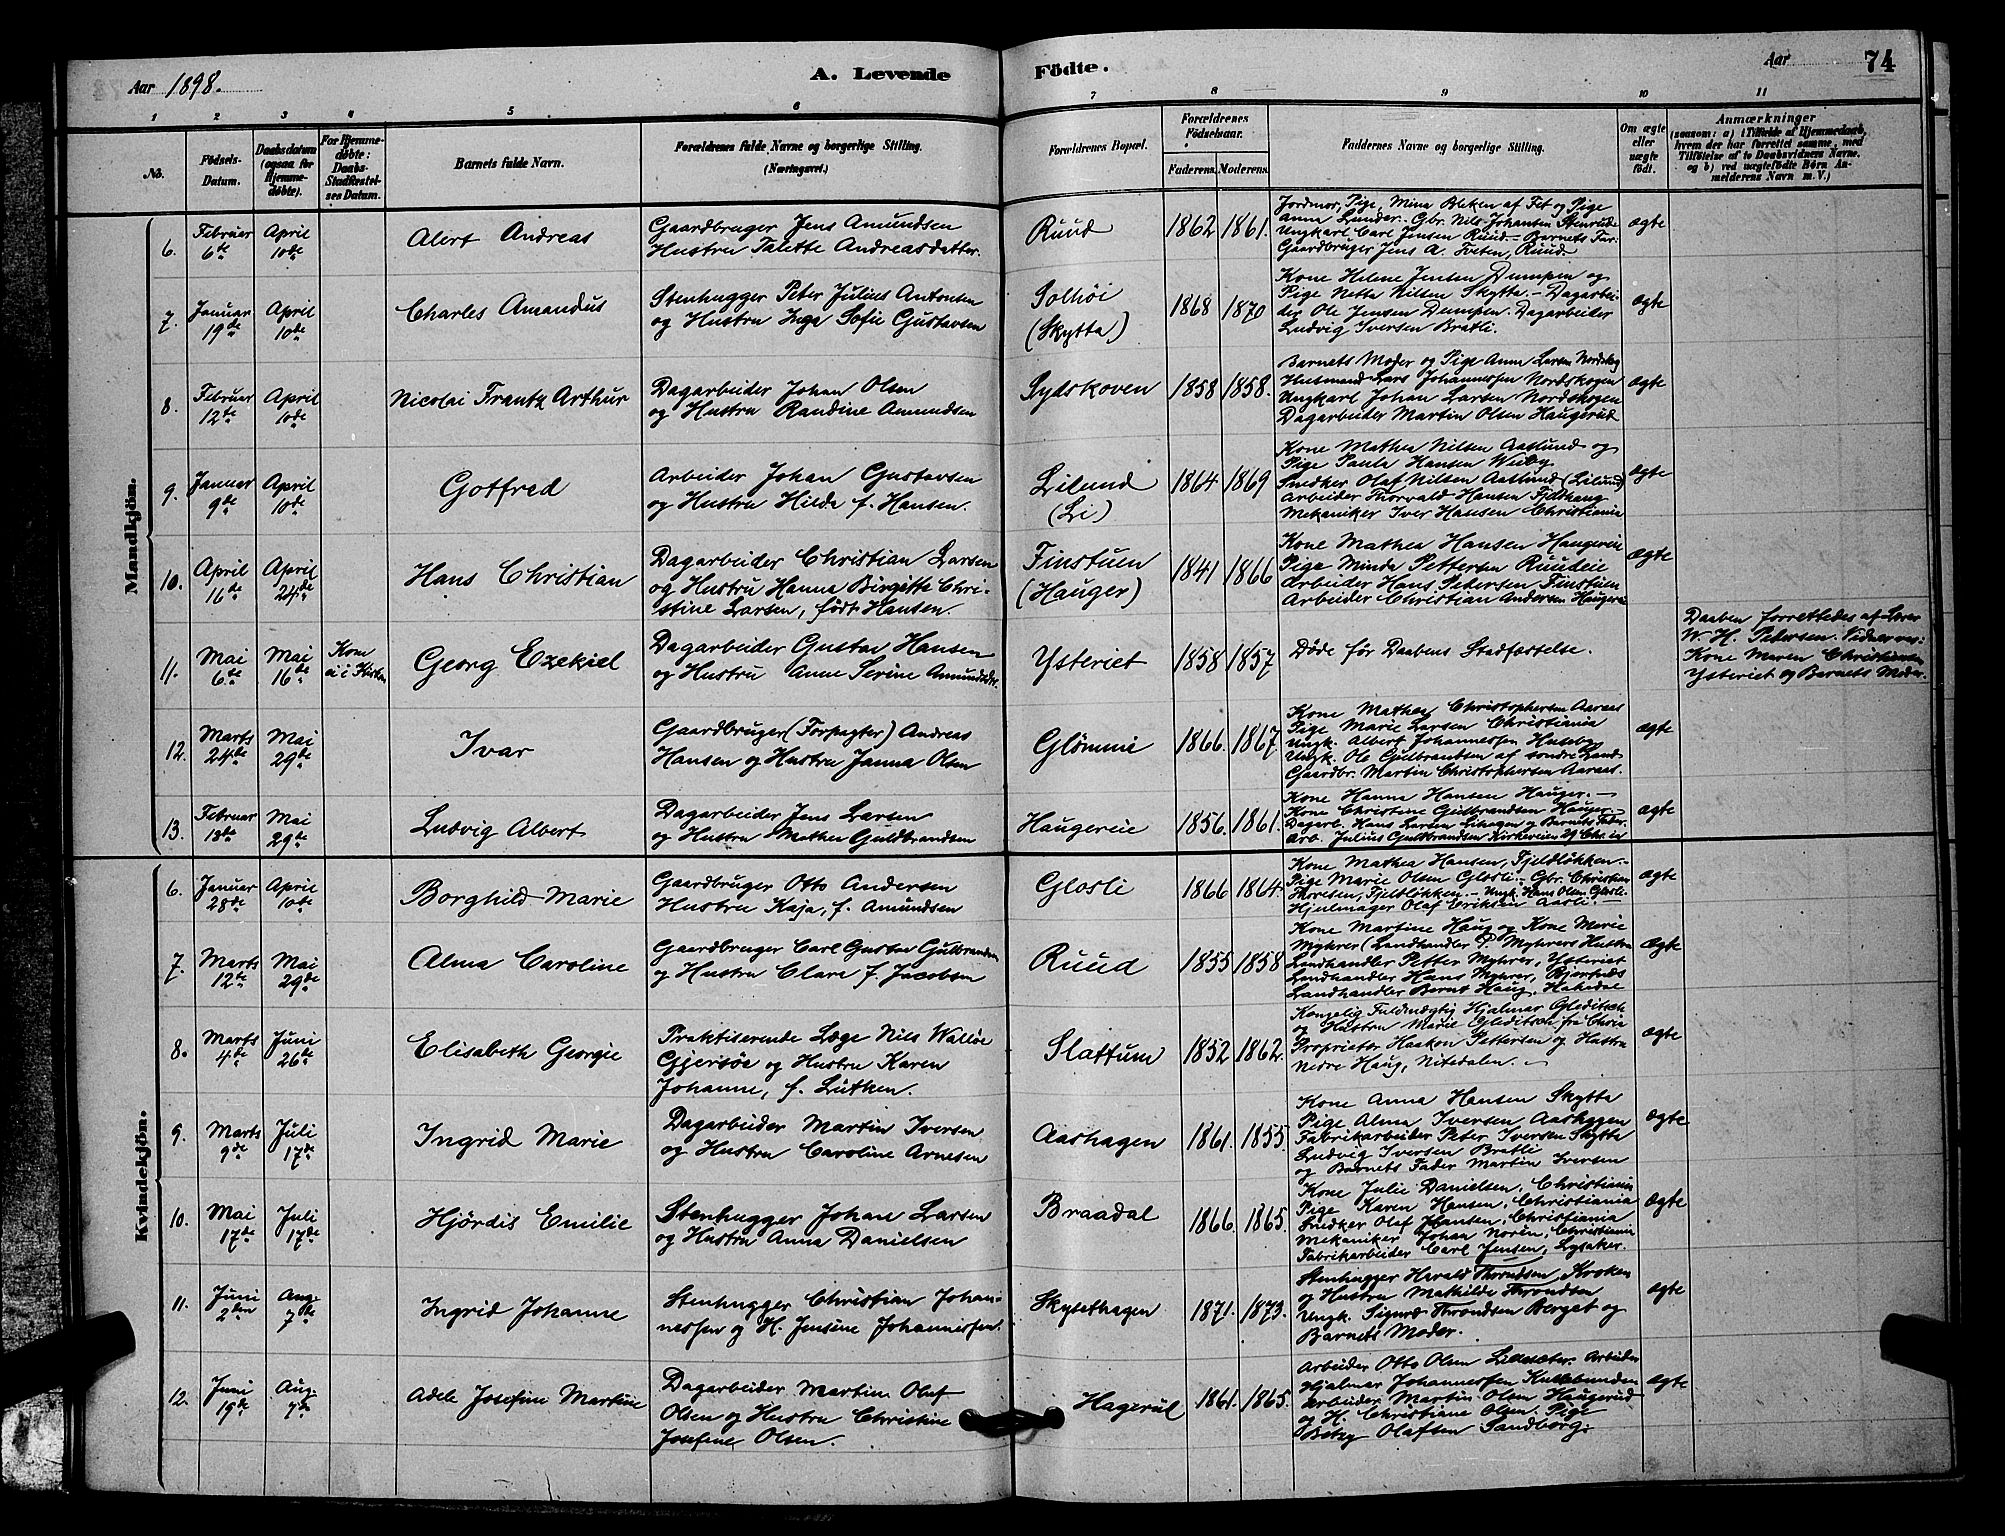 Aar 1898.
A. Levende
Födte.
Aar
74
1 2 3 4 5 6 7 8 9 10 11
No.
Födsels-Datum.
Daabsdatum (ogsaa for Hjemme-döbte).
For Hjemme-döbte: Daabs-Stadfæstel-ses Datum.
Barnets fulde Navn.
Forældrenes fulde Navne og borgerlige Stilling.
(Næringsvei.)
Forældrenes Bopæl.
Forældrenes Födselsaar.
Faderens. Moderens.
Faddernes Navne og borgerlige Stilling.
Om ægte eller uægte födt.
Anmærkninger
(saasom: a) i Tilfælde af Hjemmedaab, hvem der har forrettet samme, med Tilföielse af to Daabsvidners Navne, og b) ved uægtefödte Börn Anmelderens Navn m. V.)
Mandkjön.
6. Februar 6te April 10de
Alert Andreas
Gaardbruger Jens Amundsen
Hustru Talette Andreasdatter.
Ruud
1862 1861.
Jordmor, Pige, Mina Bleken af Fet og Pige
Anna Lunder. Gbr. Nils Johansen Stenrude
Ungkarl Carl Jensen Ruud. - Barnets Far:
Gaardbruger Jens A. Tveten, Ruud.
Ægte
7. Januar 19de April 10de
Charles Amandus
Stenhugger Peter Julius Antonsen
og Hustru Inga Sofie Gustavsen
Solhöi
(Skytta)
1868 1870
Kone Helene Jensen Dumpen og
Pige Netta Nilsen Skytta. - Dagarbei-
der Ole Jensen Dumpen. Dagarbeider
Ludvig Iversen Bratli.
Ægte
8. Februar 12te April 10de
Nicolai Frantz Arthur
Dagarbeider Johan Olsen
og Hustru Randine Amundsen
Sydskoven
1858 1858.
Barnets Moder og Pige Anna Larsen Nordskog
Husmand Lars Johannessen Nordskogen
Ungkarl Johan Larsen Nordskogen
Dagarbeider Martin Olsen Haugerud
Ægte
9. Januar 9de April 10de
Gotfred
Arbeider Johan Gustavsen
og Hustru Hilda f. Hansen.
Lilund
(Li)
1864 1869
Kone Mathea Nilsen Aaslund og
Pige Paula Hansen Weiby
Snedker Olaf Nilsen Aaslund (Lilund)
Arbeider Thorvald Hansen Fjeldhaug
Mekaniker Iver Hansen Christiania
Ægte
10. April 16de April 24de
Hans Christian
Dagarbeider Christian Larsen
og Hustru Hanna Birgitte Chri-
stine Larsen, född Hansen.
Finstuen
(Hauger)
1841 1866
Kone Mathea Hansen Haugereie
Pige Minda Pettersen Ruudeie
Arbeider Hans Pedersen Finstuen
Arbeider Christian Andersen Haugereie
Ægte
11. Mai 6te Mai 16de Kom ei i Kirken
Georg Ezekiel
Dagarbeider Gustav Hansen
og Hustru Anne Serine Amundsdtr.
Ysteriet
1858 1857
Döde för Daabens Stadfæstelse.
Daaben forrettedes af Lærer
W. H. Pedersen. Vidner vare:
Kone Maren Christiansen
Ysteriet og Barnets Moder.
12. Marts 24de Mai 29de
Ivar
Gaardbruger (Forpagter) Andreas
Hansen og Hustru Janna Olsen
Glömmie
1866. 1867
Kone Mathea Christophersen Aaraas
Pige Marie Larsen Christiania
Ungk. Albert Johannessen Huseby
Ungk. Ole Gulbrandsen af söndre Land
Gaardbr. Martin Christophersen Aaraas.
Ægte
13. Februar 18de Mai 29de
Ludvig Albert
Dagarbeider Jens Larsen
og Hustru Mathea Guldbrandsen
Haugereie
1856. 1861.
Kone Hanna Hansen Hauger. -
Kone Christine Gulbrandsen Hauger. -
Dagarb. Hans Larsen Lihagen og Barnets Fader
Arb. Julius Guldbrandsen Kirkeveien 29 Chr.ia
Ægte
Kvindekjön.
6. Januar 28de April 10de
Borghild Marie
Gaardbruger Otto Andersen
Hustru Kaja, f. Amundsen
Glosli
1866 1864.
Kone Mathea Hansen, Fjeldlökken. -
Pige Marie Olsen Glosli. - Gbr. Christian
Thoresen, Fjeldlökken. - Ungk. Hans Olsen Glosli
Hjulmager Olaf Eriksen Aasli. -
Ægte
7. Marts 12te Mai 29de
Alma Caroline
Gaardbruger Carl Gustav Gulbrandsen
og Hustru Clara f. Jacobsen
Ruud
1855 1858
Kone Martine Haug og Kone Marie
Myhrer (Landhandler P. Myhrers Hustru
Landhandler Petter Myhrer, Ysteriet
Landhandler Hans Myhrer, Bjertnæs
Landhandler Bernt Haug, Hakedal
Ægte
8. Marts 4de Juni 26de
Elisabeth Georgie
Praktiserende Læge Nils Wallöe
Gjersöe og Hustru Karen
Johanne, f. Lütken.
Slattum
1852 1862.
Kongelig Fuldmægtig Hjalmar Gleditsch
og Hustru Marie Gleditsch fra Chria
Proprietær Haakon Pettersen og Hustru
Nedre Haug, Nitedalen. -
Ægte
9. Marts 9de Juli 17de
Ingrid Marie
Dagarbeider Martin Iversen
og Hustru Caroline Arnesen
Aashagen
1861. 1855.
Kone Anna Hansen Skytta
Pige Alma Iversen Aashagen
Fabrikarbeider Peter Iversen Skytta
Ludvig Iversen Bratli
og Barnets Fader Martin Iversen
Ægte
10. Mai 17de Juli 17de
Hjördis Emilie
Stenhugger Johan Larsen
og Hustru Anna Danielsen
Braadal
1866. 1865.
Kone Julie Danielsen, Christiania
Pige Karen Hansen, Christiania
Snedker Olaf Hansen, Christiania
Mekaniker Johan Norén, Christiania
Fabrikarbeider Carl Jensen, Lysaker.
Ægte
11. Juni 2den Aug. 7de
Ingrid Johanne
Stenhugger Christian Johan-
nessen og H. Jensine Johannessen.
Skyttehagen
1871. 1873.
Stenhugger Harald Throndsen, Kroken
og Hustru Mathilde Throndsen
Ungk. Sigurd Throndsen Berget og
Barnets Moder.
Ægte
12. Juni 19de Aug. 7de
Adele Josefine Martine
Dagarbeider Martin Olaf
Olsen og Hustru Christine
Josefine Olsen.
Hagerud
1861. 1865.
Arbeider Otto Olsen Lillesæter. Arbeider
Hjalmar Johannessen Kullebunden
Arbeider Martin Olsen Haugerud
og H. Christiane Olsen. Pige
Betzy Olafsen Sandborg.
Ægte